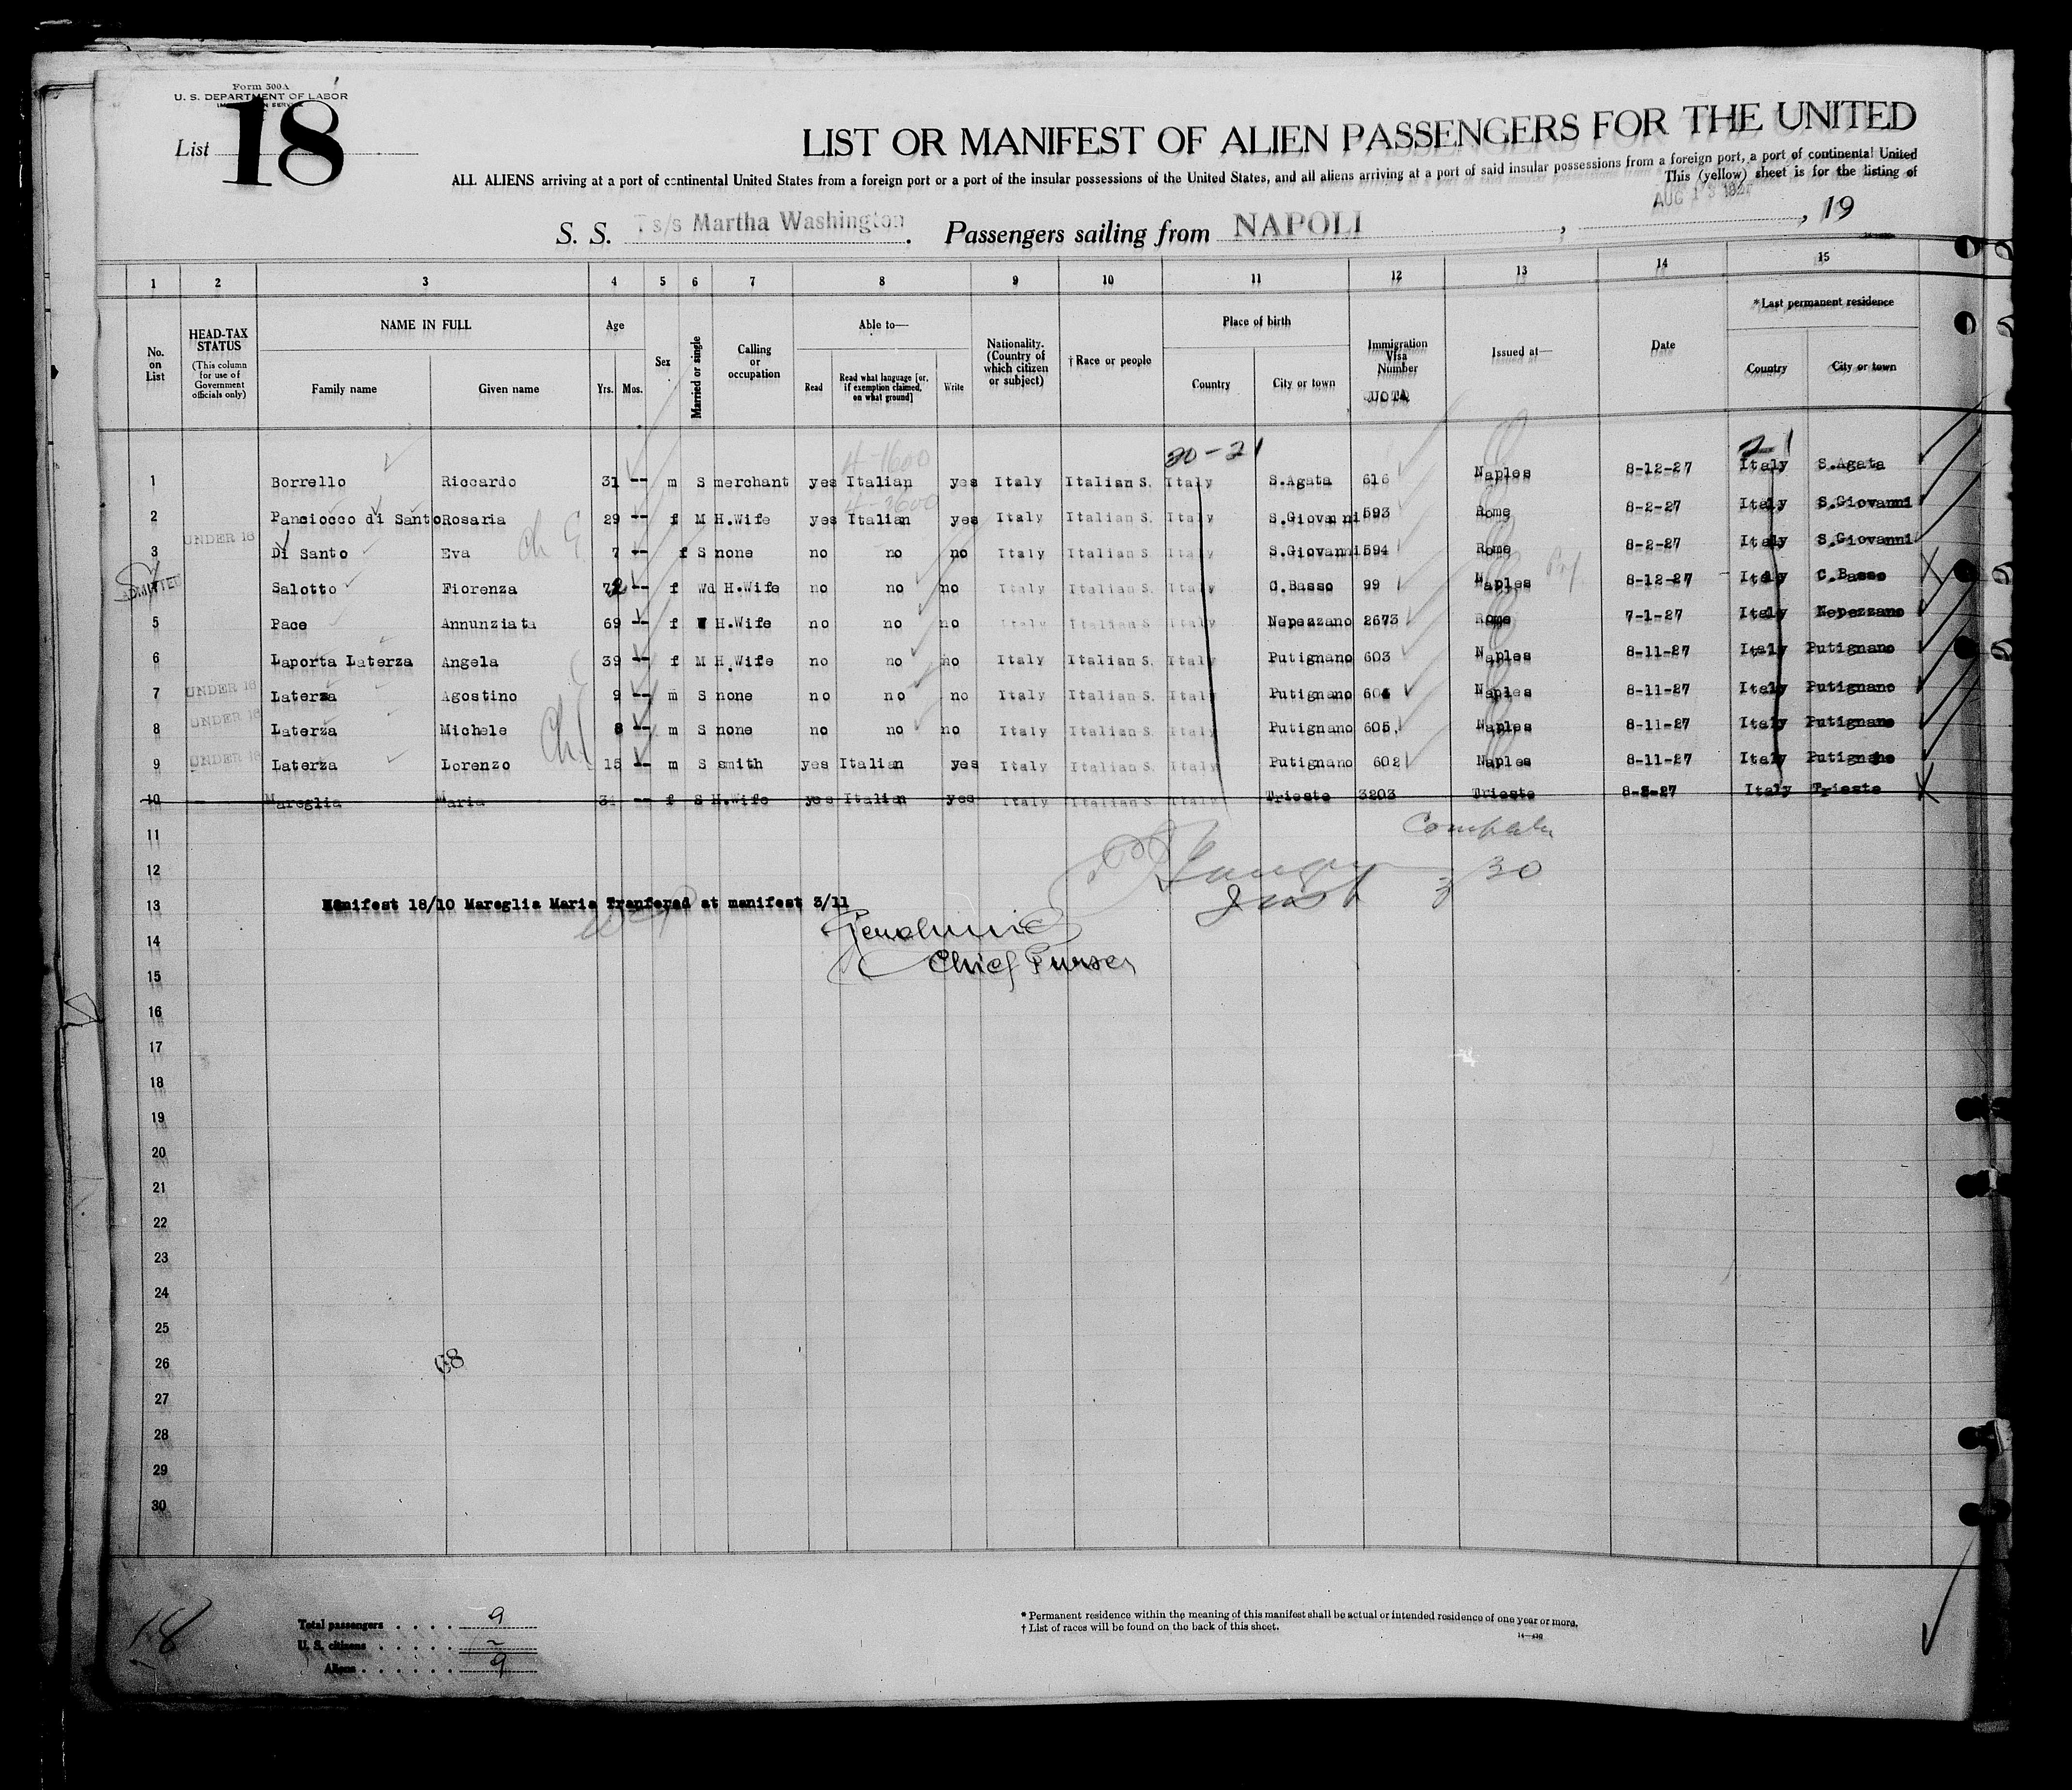 Form 500A
U. S. DEPARTMENT OF LABOR
List 18
LIST OR MANIFEST OF ALIEN PASSENGERS FOR THE UNITED
ALL ALIENS arriving at a port of continental United States from a foreign port or a port of the insular possessions of the United States, and all aliens arriving at a port of said insular possessions from a foreign port, a port of continental United
This (yellow) sheet is for the listing of
S. S. T s/s Martha Washington. Passengers sailing from NAPOLI, AUG 13 1927, 19
1 2 3 4 5 6 7 8 9 10 11 12 13 14 15
No. on List HEAD-TAX STATUS (This column for use of Government officials only) NAME IN FULL Family name Given name Age Yrs. Mos. Sex Married or single Calling or occupation Able to— Read Read what language [or, if exemption claimed, on what ground] Write Nationality. (Country of which citizen or subject) † Race or people Place of birth Country City or town Immigration Visa Number Issued at— Date *Last permanent residence Country City or town
4-1600 20-21 21
1 Borrello Riccardo 31 -- m S merchant yes Italian yes Italy Italian S. Italy S.Agata 616 Naples 8-12-27 Italy S.Agata
2 Panciocco di Santo Rosaria 29 -- f M H.Wife yes Italian yes Italy Italian S. Italy S.Giovanni 593 Rome 8-2-27 Italy S.Giovanni
3 UNDER 16 Di Santo Eva 7 -- f S none no no no Italy Italian S Italy S.Giovanni 594 Rome 8-2-27 Italy S.Giovanni
ADMITTED Salotto Fiorenza 72 -- f Wd H.Wife no no no Italy Italian S Italy C.Basso 99 Naples 8-12-27 Italy C.Basso
5 Pace Annunziata 69 -- f W H.Wife no no no Italy Italian S Italy Nepezzano 2673 Rome 7-1-27 Italy Nepezzano
6 Laporta Laterza Angela 39 -- f M H.Wife no no no Italy Italian S. Italy Putignano 603 Naples 8-11-27 Italy Putignano
7 UNDER 16 Laterza Agostino 9 -- m S none no no no Italy Italian S. Italy Putignano 604 Naples 8-11-27 Italy Putignano
8 UNDER 16 Laterza Michele 8 -- m S none no no no Italy Italian S. Italy Putignano 605 Naples 8-11-27 Italy Putignano
9 UNDER 16 Laterza Lorenzo 15 -- m S smith yes Italian yes Italy Italian S. Italy Putignano 602 Naples 8-11-27 Italy Putignano
10 Mareglia Maria 31 -- f S H.Wife yes Italian yes Italy Italian S. Italy Trieste 3203 Trieste 8-8-27 Italy Trieste
11
12 30
13 Manifest 18/10 Mareglia Maria Tranfered at manifest 3/11
14
15 Chief Purser
16
17
18
19
20
21
22
23
24
25
26 68
27
28
29
30
18
Total passengers . . . . 9
U. S. citizens . . . . . ~
Aliens . . . . . . 9
* Permanent residence within the meaning of this manifest shall be actual or intended residence of one year or more.
† List of races will be found on the back of this sheet.